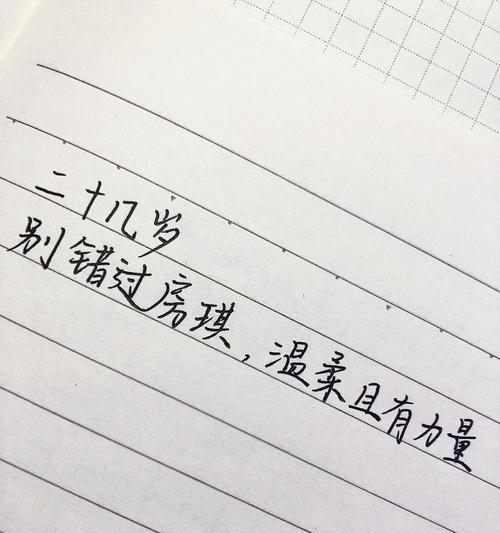 二十几岁
别错过房琪,温柔且有力量